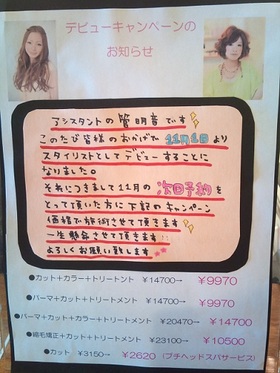 デビューキャンペーンの
お知らせ
アシスタントの管明音です
このたび皆様のおかげで11月1日より
スタイリストとしてデビューすることに
なりました。
それにつきまして11月の次回予約を
とって頂いた方に下記のキャンペーン
価格で施術させて頂きます
一生懸命させて頂きます
よろしくお願い致します
●カット+カラー+トリートント ¥14700→ ¥9970
●パーマ+カット+トリートメント ¥14700→ ¥9970
●パーマ+カラー+カット+トリートメント ¥20470→ ¥14700
●縮毛矯正+カット+トリートメント ¥23100→ ¥10500
●カット ¥3150→ ¥2620 (プチヘッドスパサービス)